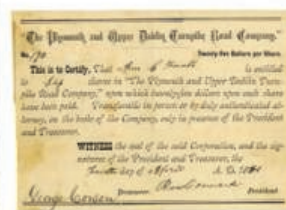 The Plymouth and Upper Dublin Turnpike Road Company.
No. 170 Twenty-five Dollars per Share.
This is to Certify, That is entitled
to shares in "The Plymouth and Upper Dublin Turn-
pike Road Company," upon which twenty-five dollars upon each share
have been paid. Transferable in person or by duly authenticated at-
torney, on the books of the Company, only in presence of the President
and Treasurer.
WITNESS the seal of the said Corporation, and the sig-
natures of the President and Treasurer, the
day of A. D.
George Corson Treasurer President